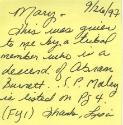 Mary, 9/26/97
This was given
to me by a tribal
member who is a
descend. of Abram
Burnett. S.P. Maloy
is listed on Pg 4.
(FYI) Thanks, Lisa